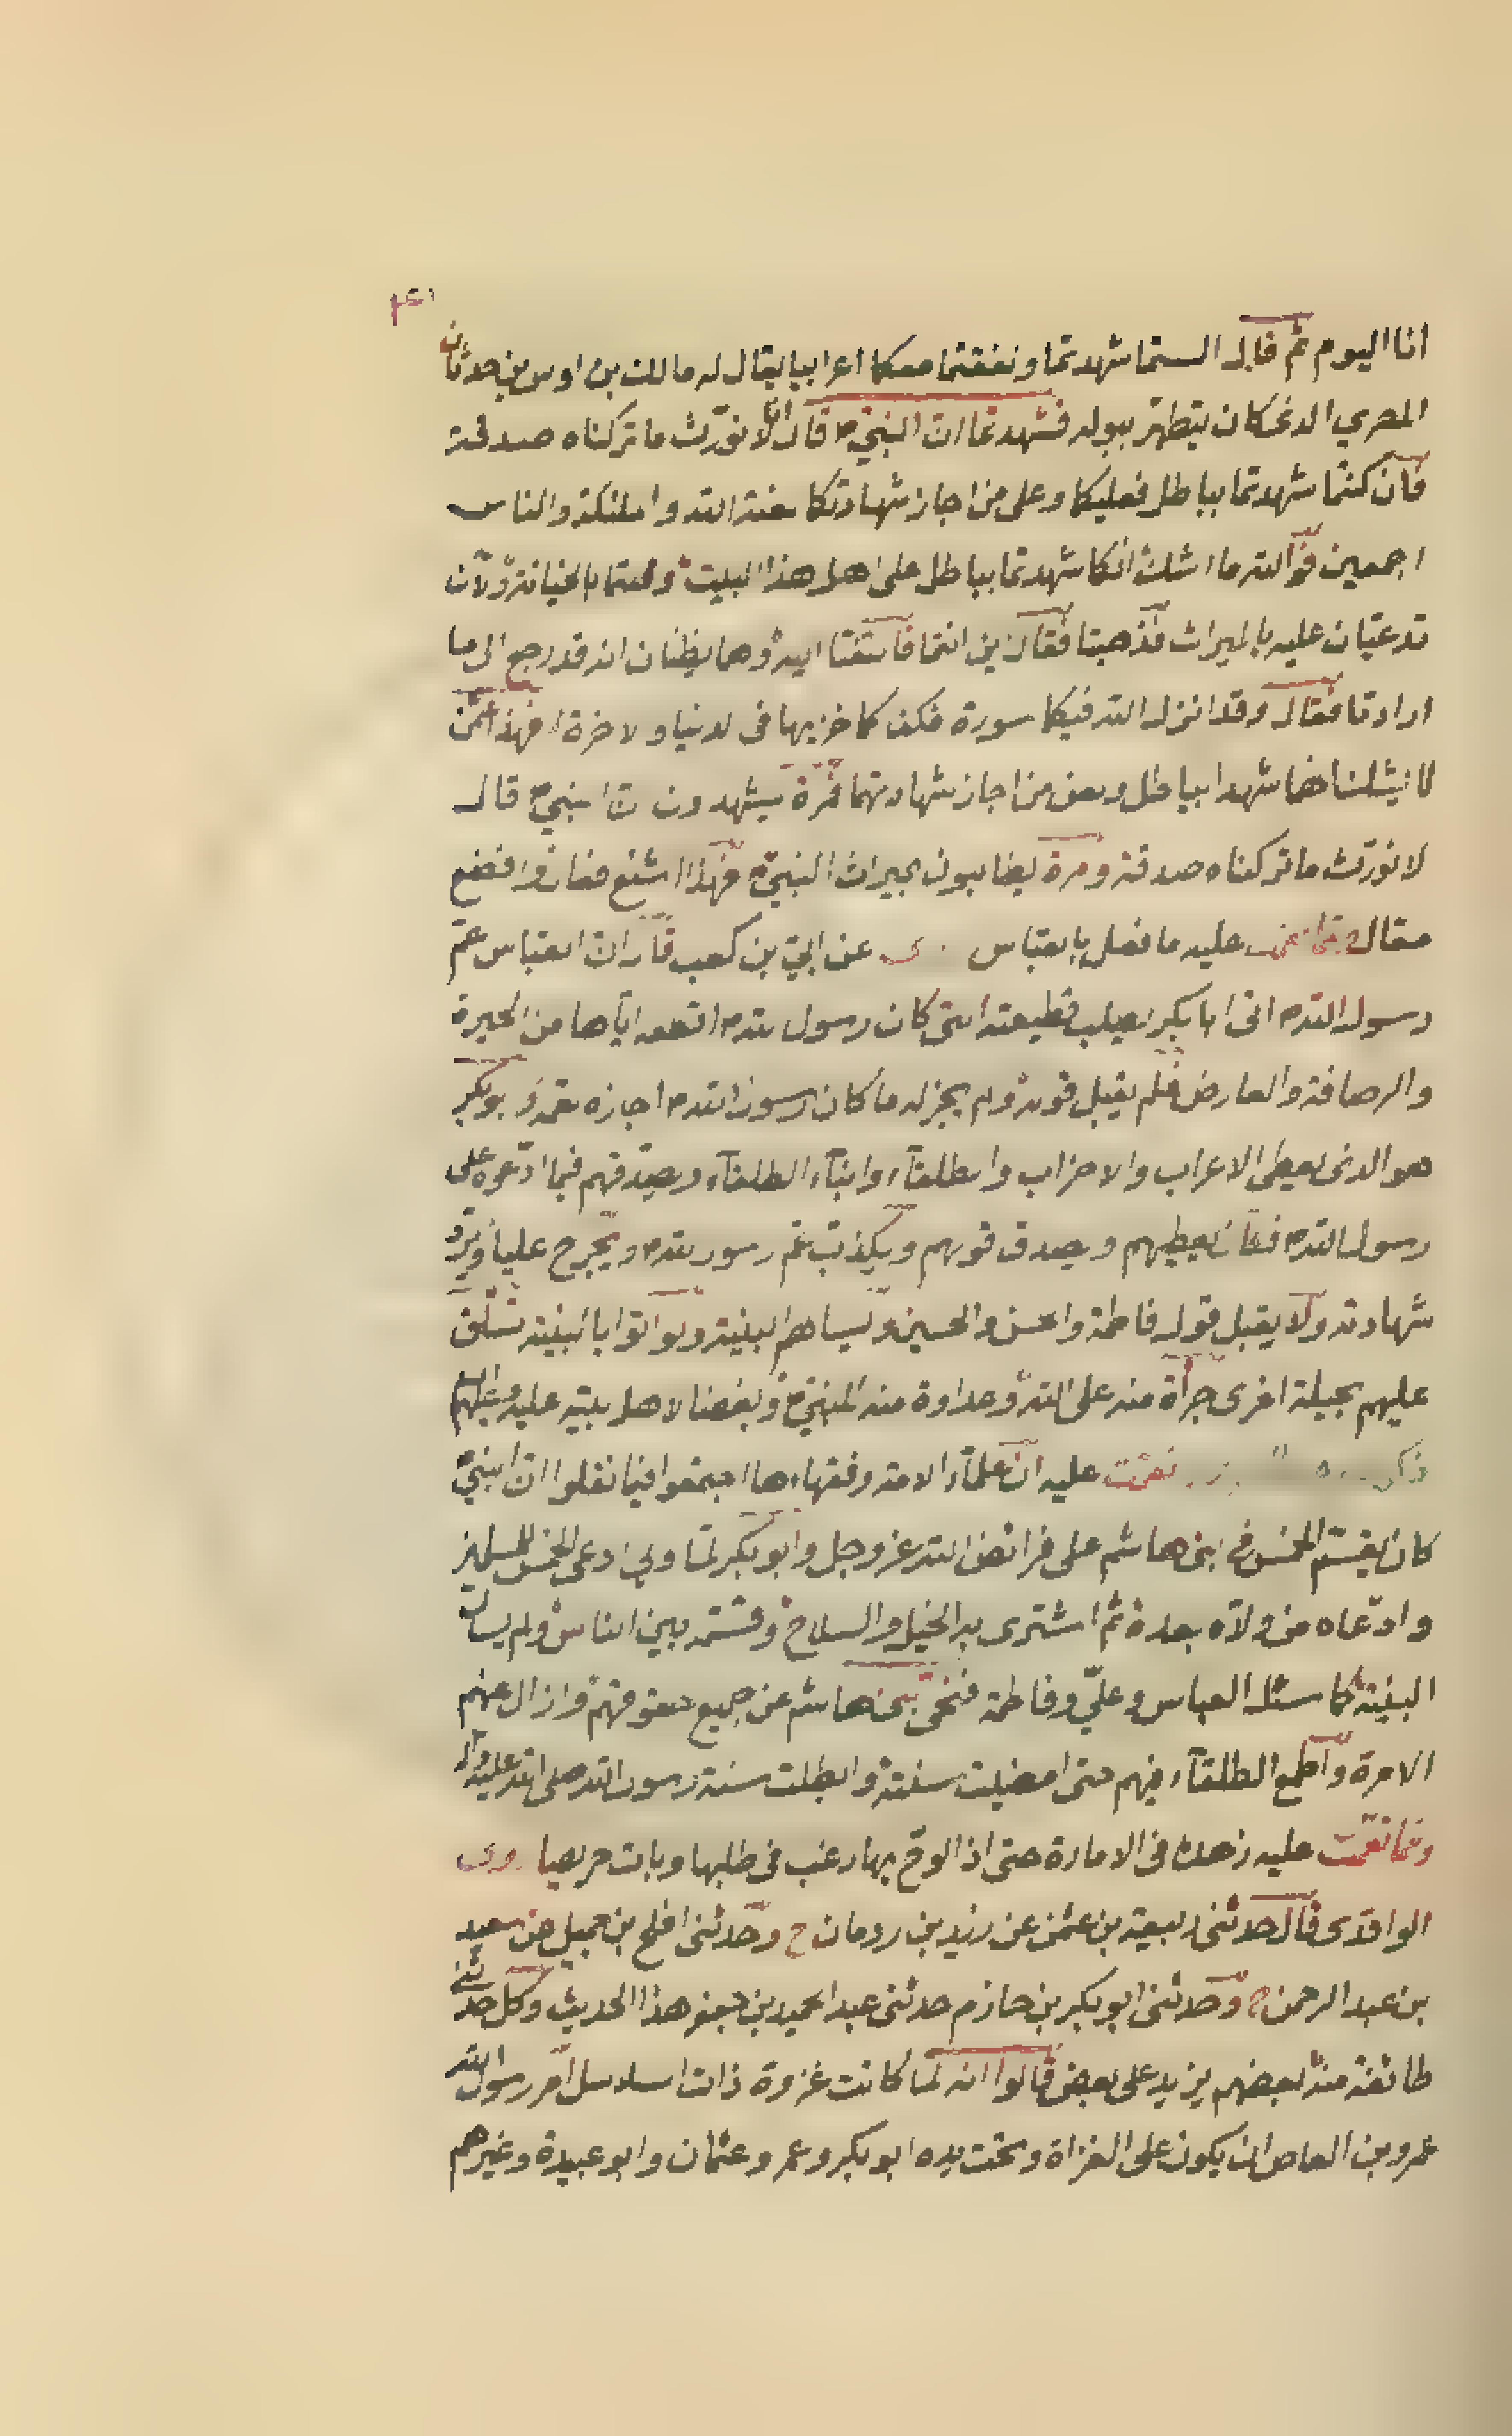 انا اليوم ثم قال الستما شهدتما ونفقتما معكما اعرابيا يقال له مالك بن اوس بن حدثان
المصري الذي كان يتطهر ببوله فشهدتما ان النبي ص قال لا نورث ما تركناه صدقة
فان كنتما شهدتما بباطل فعليكما وعلى من اجاز شهادتكما لعنة الله والملئكة والناس
اجمعين فوالله ما اشك انكما شهدتما بباطل على اهل هذا البيت بالخيانة والآن
تدعيان عليه بالميراث فذهبتا فقال بن انتما اليه وهما يظنان انه قد رجع الى ما
ارادتا فقال وقد انزل الله فيكما سورة كما خزيها في لدنيا ولاخرة فهذا
شهدا بباطل ولعن من اجاز شهادتهما فمرة يشهدون ان النبي ص قال
لا نورث ما تركناه صدقة ومرة يطالبون بميراث النبي ص فهذا اشنع فعال وافضع
مقال عليه ما فعل بالعباس عن ابي بن كعب قال ان العباس عم
رسول الله ص اتى ابا بكر يطلب قطيعته التي كان رسول الله ص اقطعه اياها من الحيرة
والرصافة والعارض فلم يقبل قوله ولم يجز له ما كان رسول الله ص اجازه بوبكر
هو الذي يعطي الاعراب والاحزاب والطلقآء وابنآء الطلقآء ويصدقهم فيما ادعوه على
رسول الله ص فكان يعطيهم ويصدق قولهم ويكذب عم رسول الله ص ويجرح عليا ويرد
شهادته ولا يقبل قول فاطمة والحسن والحسين ويسألهم البينة ولو اتوا بالبينة
عليهم بحيلة اخرى جرأة منه على الله وعداوة منه للنبي ص وبغضا لاهل بيته عليه وعليهم السلم
نقمت عليه ان علمآء الامة وفقهاءها اجمعوا فيما نقلوا ان النبي
كان يقسم الخمس في بني هاشم على فرائض الله عز وجل وابو بكر لما ولي ادعى الخمس للمسلمين
وادعاه من ولاه بعده ثم اشترى به الخيل والسلاح وقسمه بين الناس ولم يسأل
البينة كما سئل العباس وعلي وفاطمة فنحى بني هاشم عن جميع حقوقهم وازال عنهم
الامرة واطمع الطلقآء فيهم حتى امضيت سنته وابطلت سنة رسول الله صلى الله عليه وآله
ومما نقمت عليه زهده في الامارة حتى اذا لوح بها رغب في طلبها وبات حريصا روى
الواقدي قال حدثني ربيعة بن عثمن عن رزيد بن رومان ح وحدثني افلح بن حميل عن سعيد
بن عبد الرحمن ح وحدثني ابو بكر بن حازم حدثني عبد الحميد بن جعفر هذا الحديث وكل حدثني
طائفة منه بعضهم يزيد على بعض قالوا انه لما كانت غزوة ذات السلاسل امر رسول الله
عمرو بن العاص ان يكون على الغزاة وتحت يده ابو بكر وعمر وعثمان وابو عبيدة وغيرهم